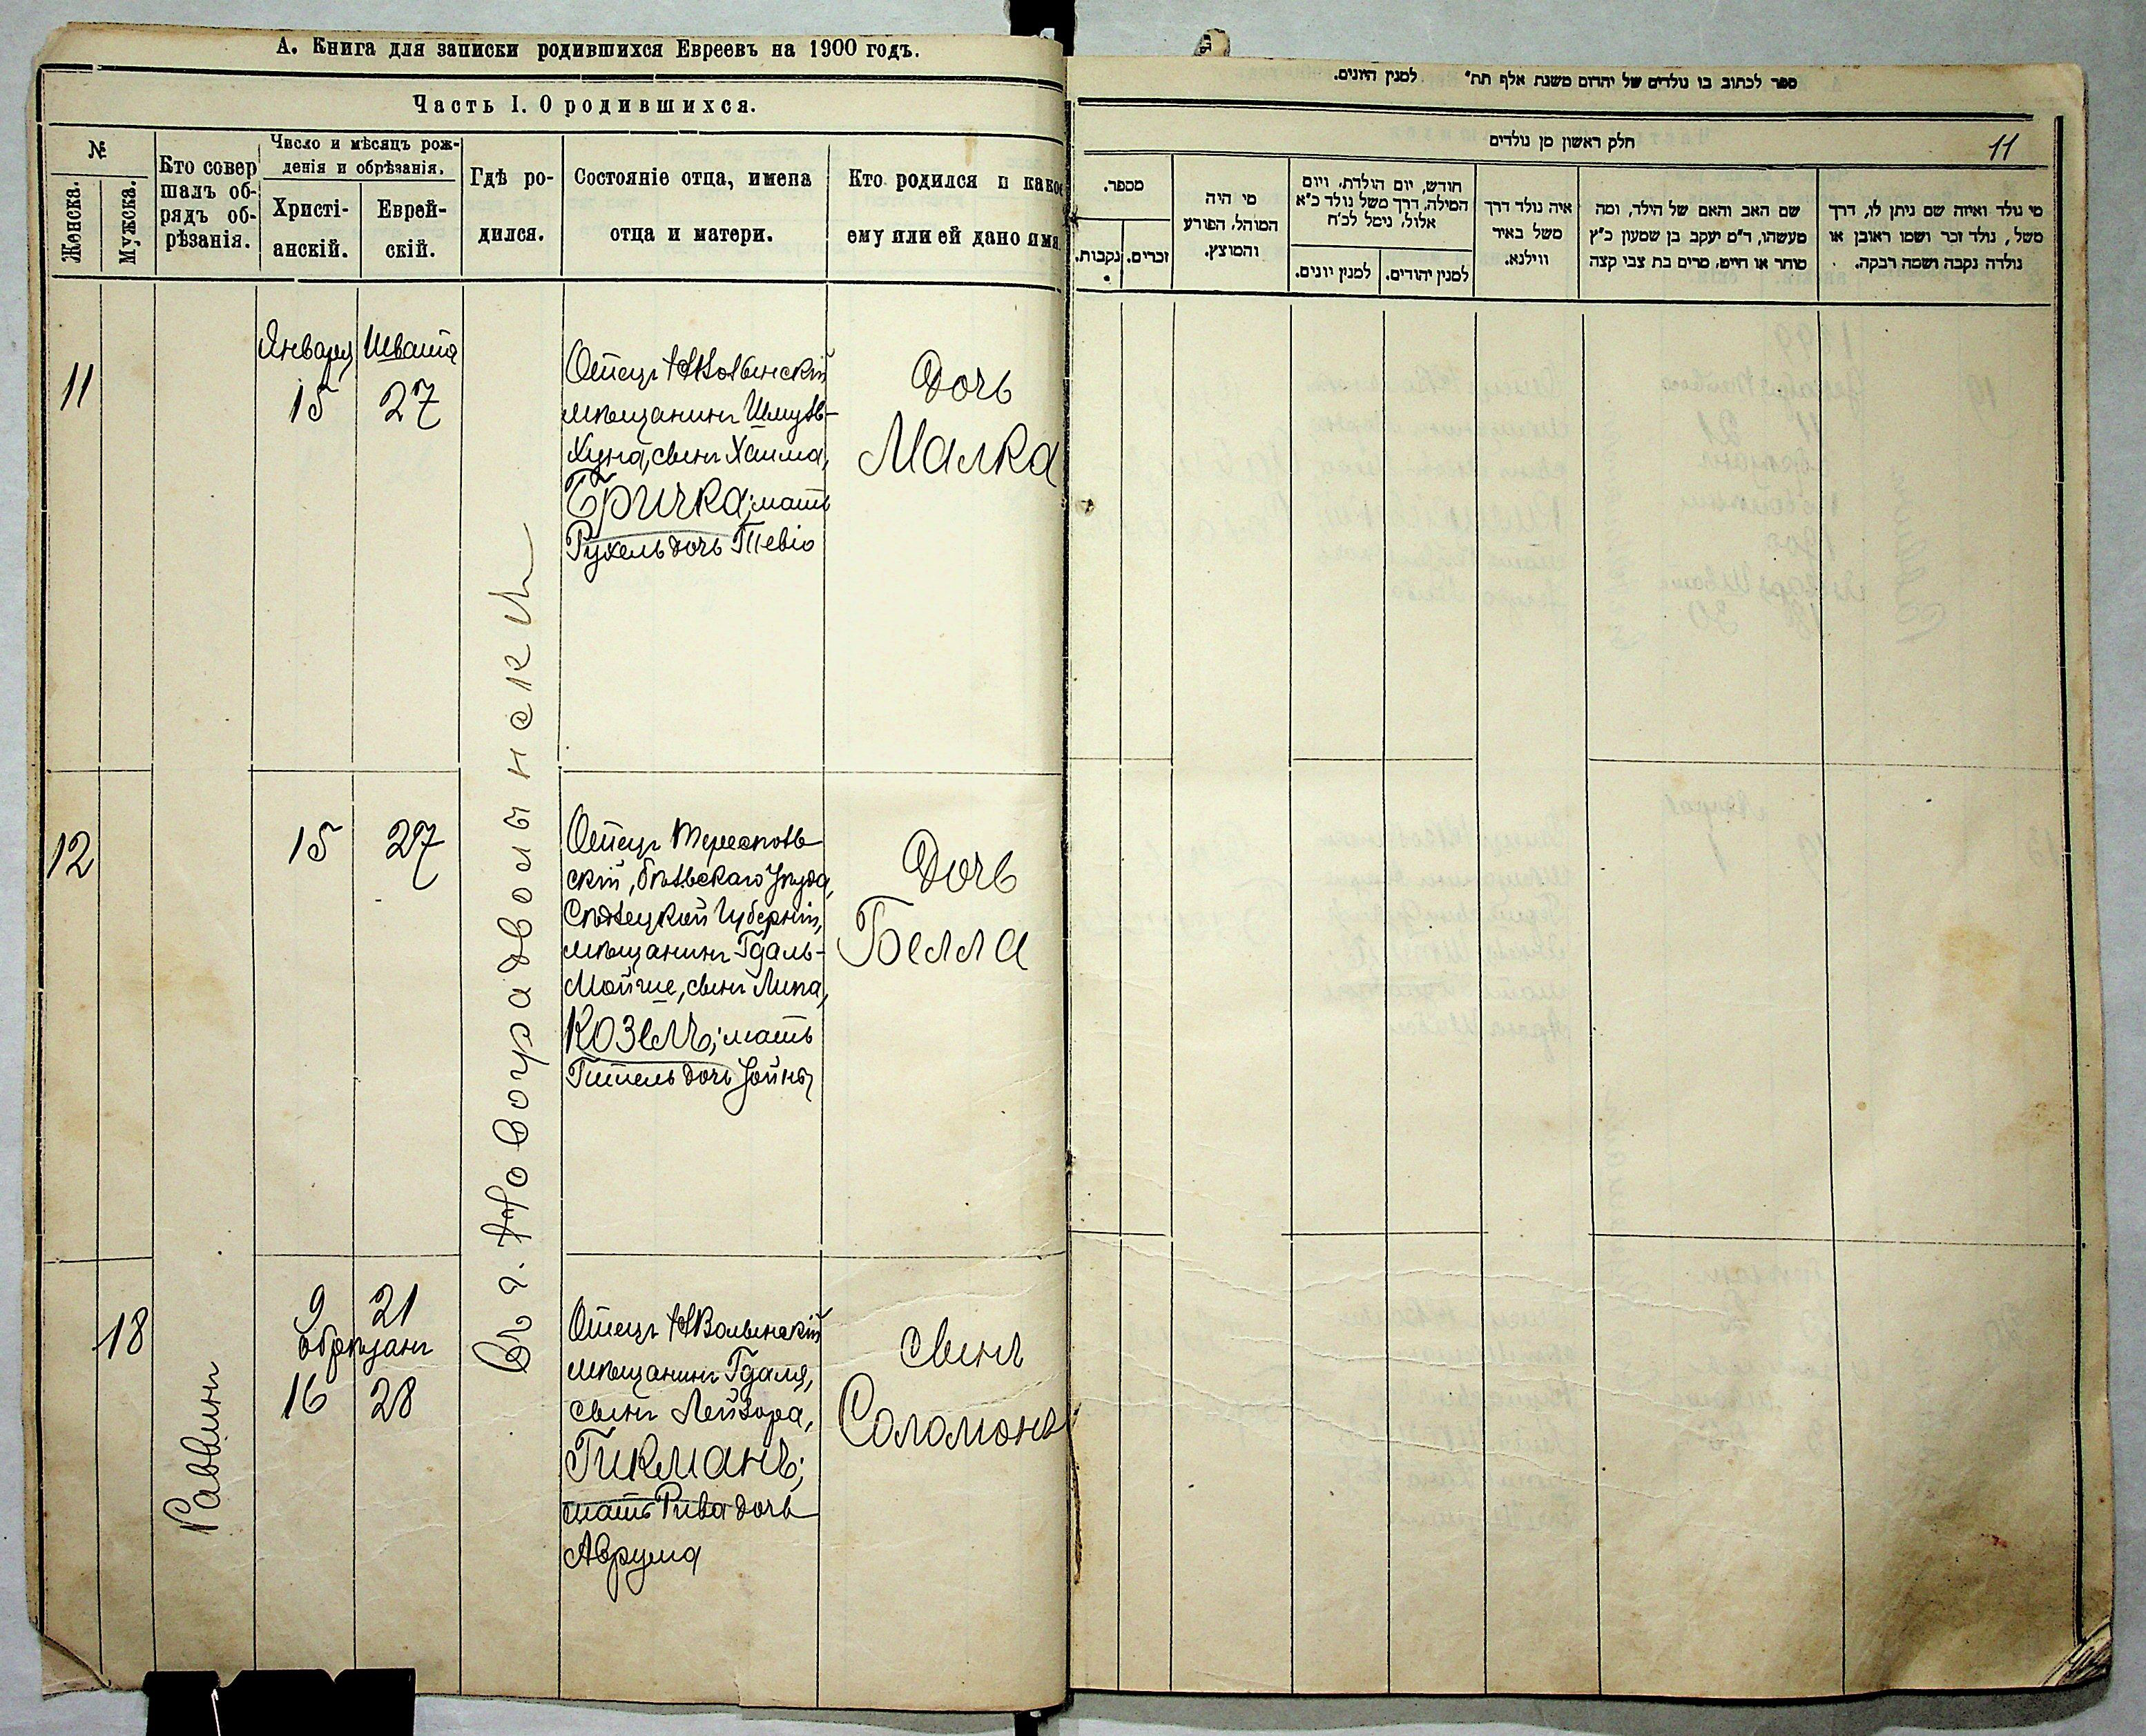 А. Книга для записки родившихся Евреевъ на 1900 годъ.
Часть I. О родившихся.
№
Женска.
Мужска.
Кто совер
шалъ об-
рядъ об-
рѣзанія.
Число и мѣсяцъ рож-
денія и обрѣзанія.
Христі-
анскій.
Еврей-
скій.
Гдѣ ро-
дился.
Состояніе отца, имена
отца и матери.
Кто родился и какое
ему или ей дано имя.
11
Января Швата
15 27
Отецъ НВолынскій
мѣщанинъ Шмуль-
Хуна, сынъ Хаима,
Бричка; мать
Рухель дочь Тевіо
Дочь
Малка
Въ г. Новоградволынскѣ
12
15 27
Отецъ Тересполь-
скій, Бѣльскаго уѣзда,
Сѣдлецкой Губерніи,
мѣщанинъ Гдаль-
Мойше, сынъ Липа,
Козелъ; мать
Гитель дочь
Дочь
Белла
18
Раввинъ
9 21
обрѣзанъ
16 28
Отецъ НВолынскій
мѣщанинъ Гдаля,
сынъ Лейзора,
Гикманъ;
мать Рива дочь
Аврума
сынъ
Соломонъ
ספר לכתוב בו נולדים של יהדום משנת אלף תת״ למנין היונים.
חלק ראשון מן נולדים
11
מספר.
נקבות.
זכרים.
מי היה
המוהל, הפורע
והמוצץ.
חודש, יום הולדת, ויום
המילה, דרך משל נולד כ״א
אלול, ניסל לכ״ח
למנין יונים.
למנין יהודים.
איה נולד דרך
משל באיד
ווילנא.
שם האב והאם של הילד, ומה
מעשהו, ד״ם יעקב בן שמעון כ״ץ
סוחר או חייט, מרים בת צבי קצה
מי נולד ואיזה שם ניתן לו, דרך
משל, נולד זכר ושמו ראובן או
נולדה נקבה ושמה רבקה.